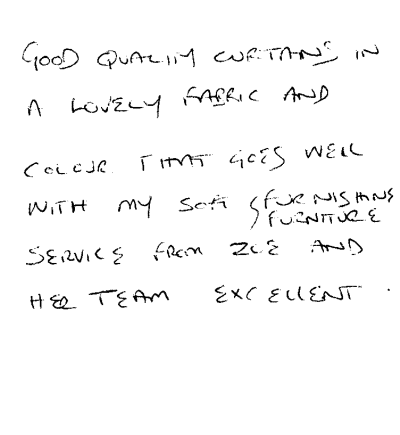 GOOD QUALITY CURTAINS IN
A LOVELY FABRIC AND
COLOUR THAT GOES WELL
WITH MY SOFT FURNISHINS
FURNITURE
SERVICE FROM ZOE AND
HER TEAM EXCELLENT.